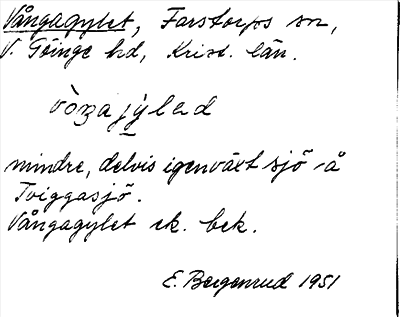 Vångagylet, Farstorps sn,
V. Göinge hd, Krist. län.
vòŋajỳləd
mindre, delvis igenväxt sjö å
Tviggasjö.
Vångagylet ek. bek.
E. Bergenrud 1951